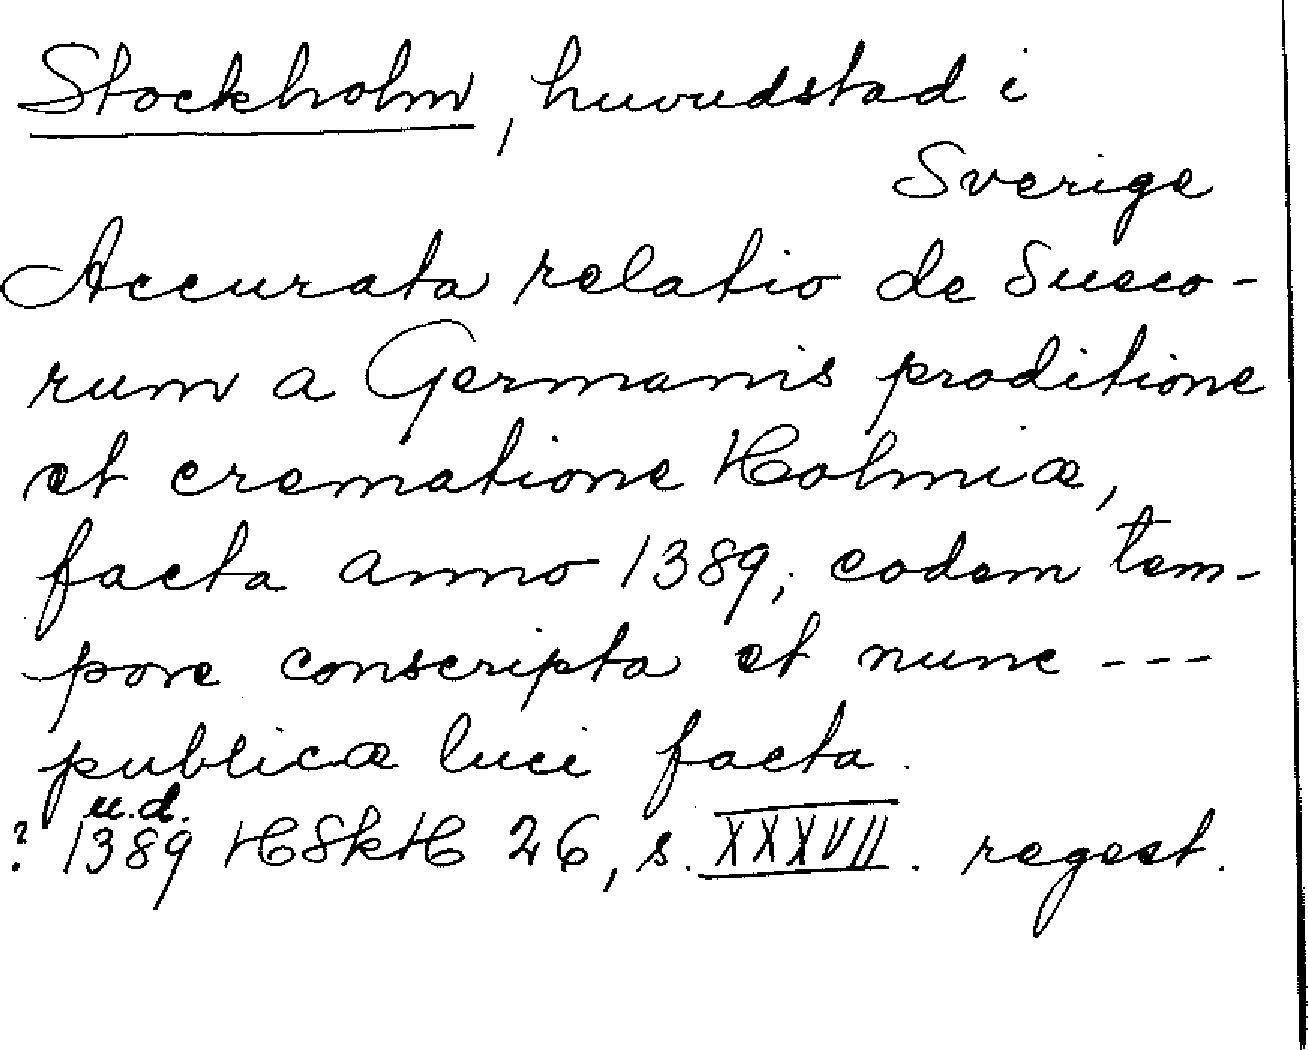 Stockholm, huvudstad i
Sverige
Accurata relatio de Sueco-
rum a Germanis proditione
et crematione Holmiæ,
facta anno 1389, eodem tem-
pore conscripta et nunc ---
publicæ luci facta.
u.d.
? 1389 HSkH 26, s. XXXVII. regest.